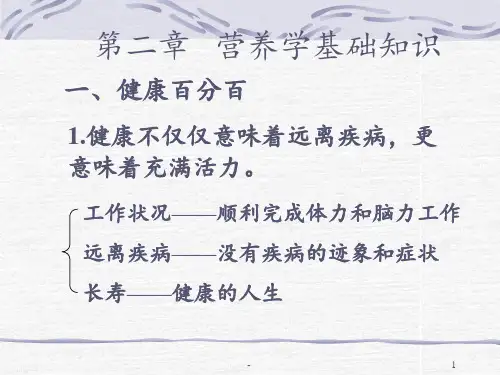 第二章 营养学基础知识
一、健康百分百
1.健康不仅仅意味着远离疾病，更
意味着充满活力。
工作状况——顺利完成体力和脑力工作
远离疾病——没有疾病的迹象和症状
长寿——健康的人生
- 1